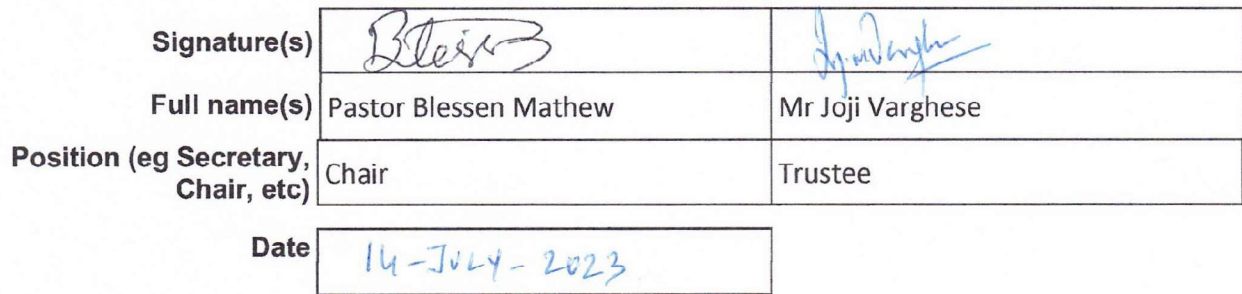 Signature(s)
Full name(s) Pastor Blessen Mathew Mr Joji Varghese
Position (eg Secretary, Chair Trustee
Chair, etc)
Date 14-JULY-2023